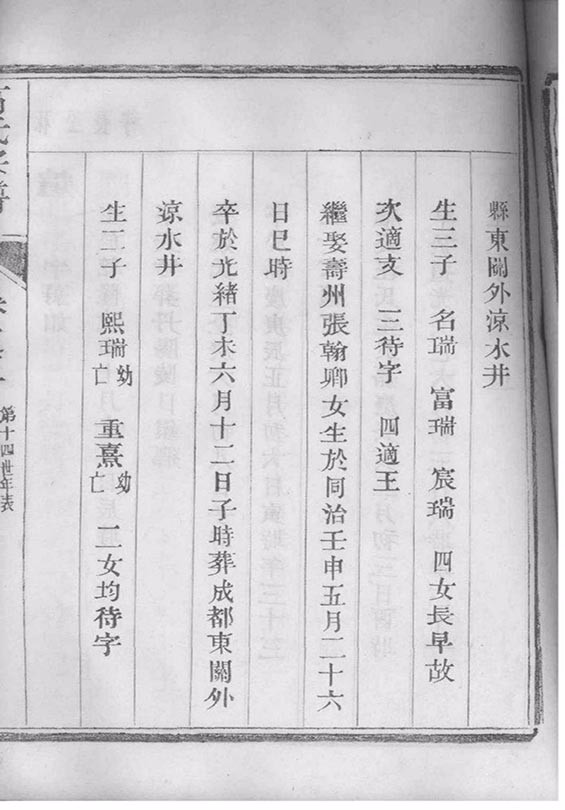 縣東關外涼水井
生三子 名瑞 富瑞 宸瑞 四女長早故
次適支 三待字 四適王
繼娶壽州張翰卿女生於同治壬申五月二十六
日巳時
卒於光緒丁未六月十二日子時葬成都東關外
涼水井
生二子 熙瑞幼亡 重熹幼亡 二女均待字
第十四世年表